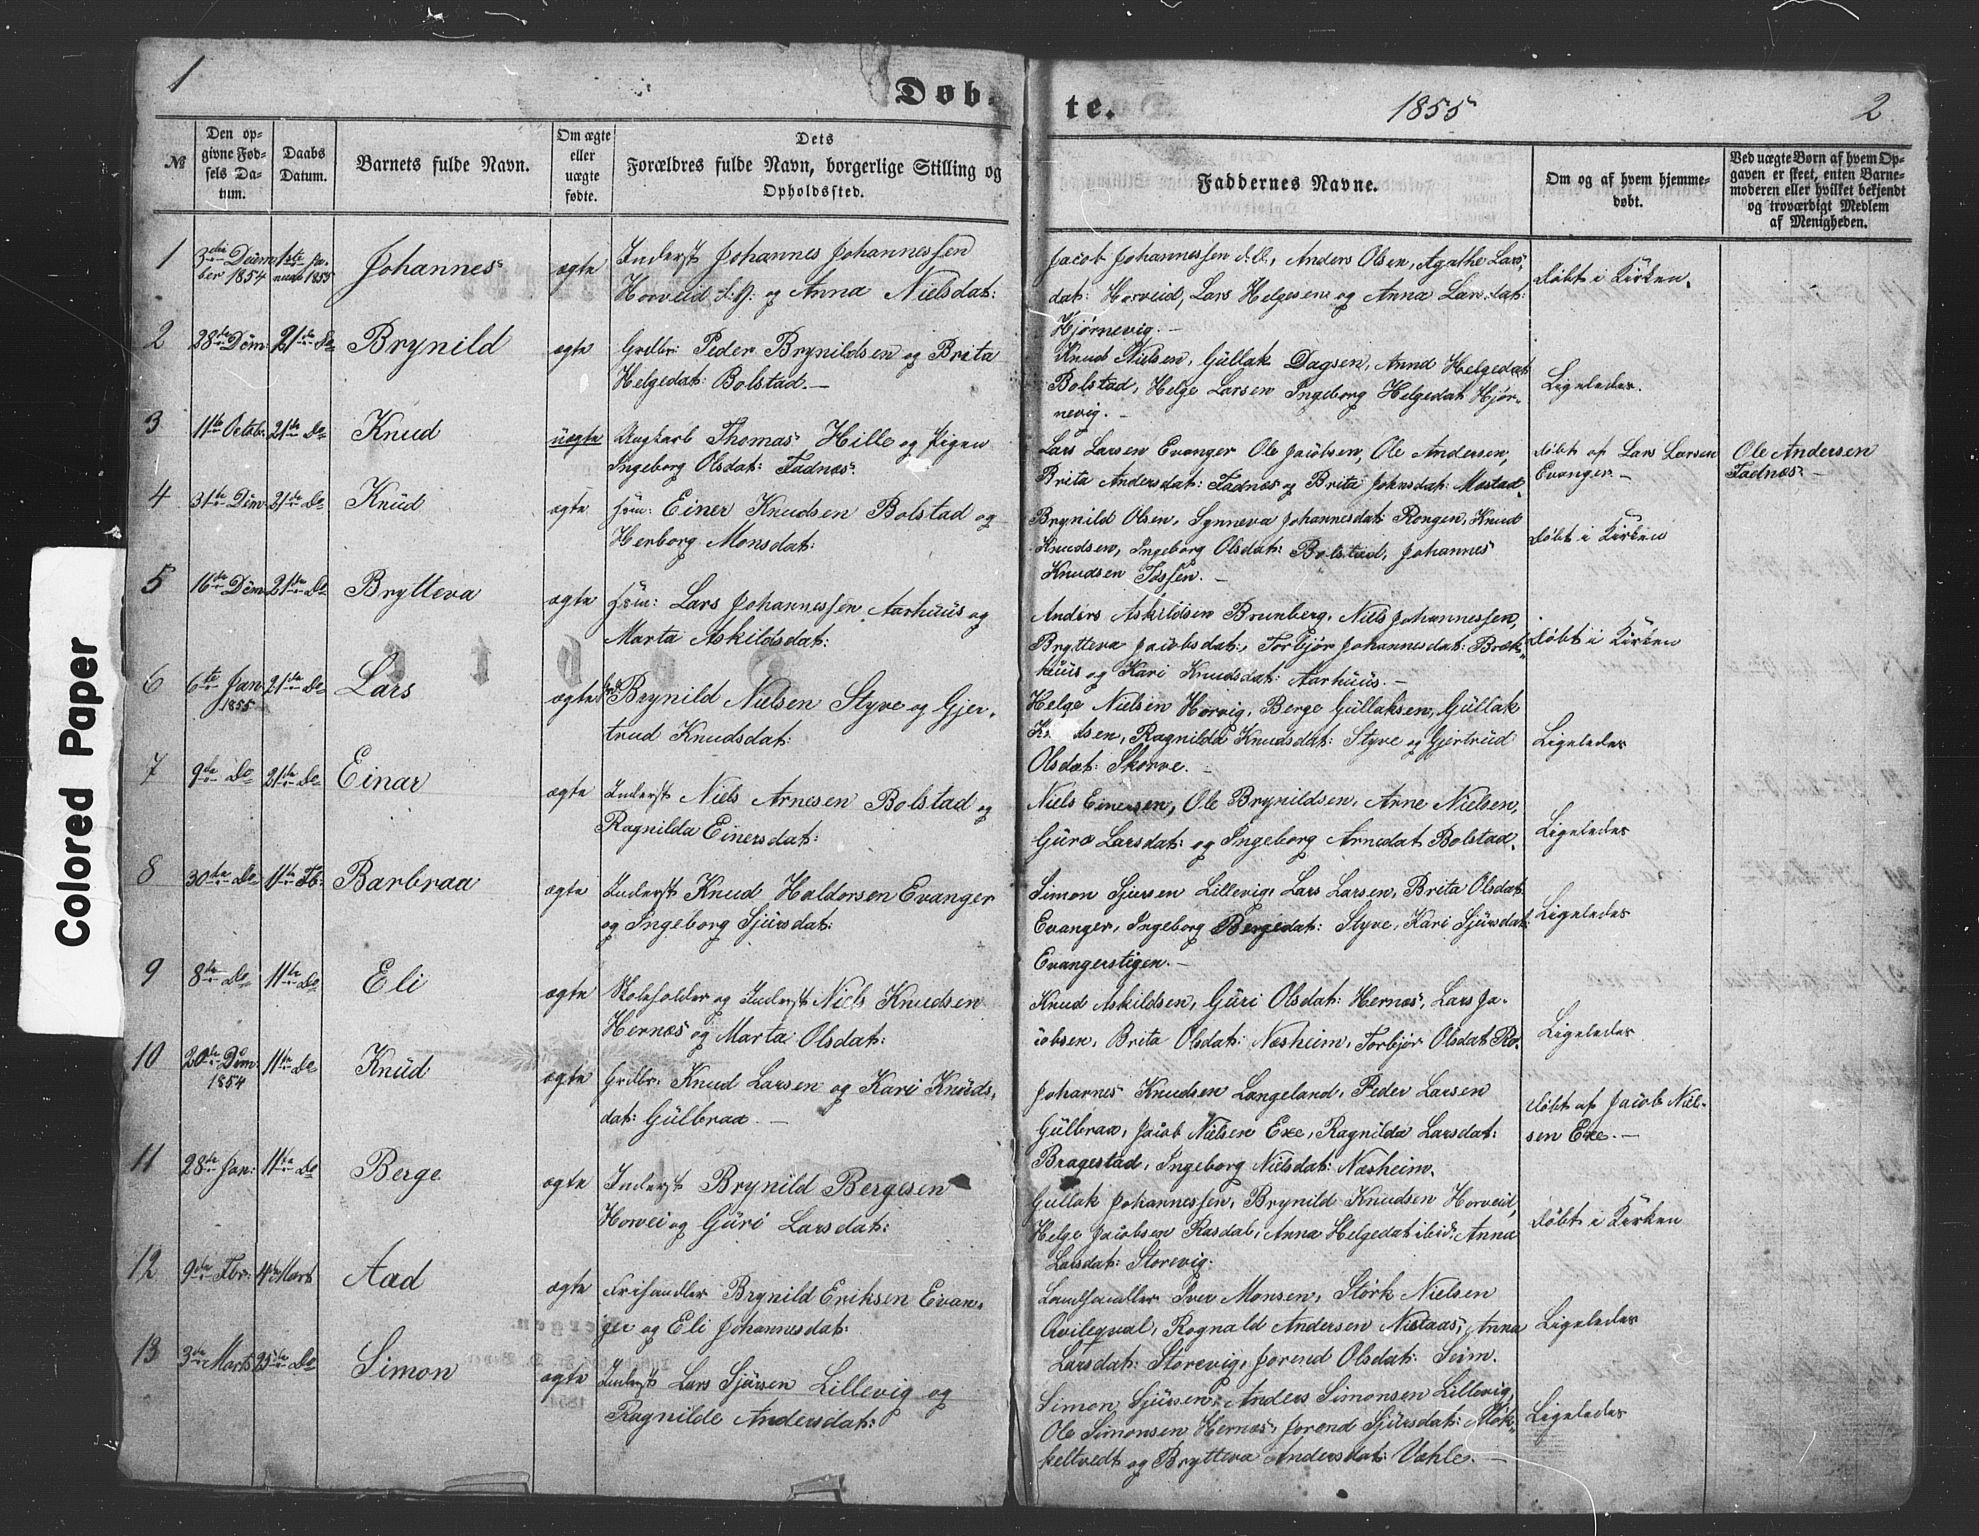 1
Døb-
te.
1855
2
№
Den op-
givne Fød-
sels Da-
tum.
Daabs
Datum.
Barnets fulde Navn.
Om ægte
eller
uægte
fødte.
Dets
Forældres fulde Navn, borgerlige Stilling og
Opholdssted.
Faddernes Navne.
Om og af hvem hjemme-
døbt.
Ved uægte Børn af hvem Op-
gaven er skeet, enten Barne-
moderen eller hvilket bekjendt
og troværdigt Medlem
af Menigheden.
1
ber 1854
Johannes
ægte
Inderst Johannes Johannessen
Horveid og Anna Nielsdat:
Jacob Johannessen Anders Olsen, Agathe Lars-
dat: Horveid, Lars Helgesen og Anna Larsdat:
Hjørnevig.—
døbt i Kirken.
2
28de Dcem: 21de Do
Brynild
ægte
Grdbr: Peder Brynildsen og Brita
Helgedat: Bolstad.—
Knud Nielsen, Gullak Dagsen, Anna Helgedat
Bolstad, Helge Larsen Ingeborg Helgedat Hjør-
nevig.—
Ligeledes.
3
11te Octob: 21de Do
Knud
uægte
Ungkarl Thomas Hille og Pigen
Ingeborg Olsdat: Fadnæs
Lars Larsen Evanger Ole Jacobsen, Ole Andersen,
Brita Andersdat: Fadnæs og Brita Johnsdat: Mostad.
døbt af Lars Larsen
Evanger.—
Ole Andersen
Fadnæs.—
4
31te Dcem: 21de Do
Knud
ægte
Einer Knudsen Bolstad og
Herborg Monsdat:
Brynild Olsen, Synneva Johannesdat: Rongen, Knud
Knudsen, Ingeborg Olsdat: Bolstad, Johannes
Knudsen Tøssen.—
døbt i Kirken
5
16de Dcem: 21de Do
Brytteva
ægte
Lars Johannessen Aarhuus og
Marta Askildsdat:
Anders Askildsen Brunberg, Niels Johannessen,
Brytteva Jacobsdat:, Torbjør Johannesdat: Bræk-
huus og Kari Knudsdat: Aarhuus.—
døbt i Kirken
6
6te Jan: 21de Do
1855
Lars
ægte
Brynild Nielsen Styve og Gjer-
trud Knudsdat:
Helge Nielsen Horvig, Berge Gullaksen, Gullak
Ragnilda Knudsdat: Styve og Gjertrud
Olsdat: Skorve.—
Ligeledes
7
9de Do 21de Do
Einar
ægte
Inderst Niels Arnesen Bolstad og
Ragnilda Einersdat:
Niels Einersen, Ole Brynildsen, Arne Nielsen,
Guro Larsdat: og Ingeborg Arnedat Bolstad.
Ligeledes
8
30de Do 11te Fb:
Barbraa
ægte
Inderst Knud Haldorsen Evanger
og Ingeborg Sjursdat:
Simon Sjursen Lillevig, Lars Larsen, Brita Olsdat:
Evanger, Ingeborg Bergedat: Styve, Kari Sjursdat:
Evangerstigen.—
Ligeledes
9
8de Do 11te Do
Eli
ægte
Skoleholder og Inderst Niels Knudsen
Hernæs og Marta Olsdat:
Knud Askildsen, Guri Olsdat: Hernæs, Lars Ja-
cobsen, Brita Olsdat: Næsheim, Torbjør Olsdat Ro-
Ligeledes
10
20de Dcem: 11te Do
1854
Knud
ægte
Grdbr: Knud Larsen og Kari Knuds-
dat: Gulbraa.—
Johannes Knudsen Langeland, Peder Larsen
Gulbraa, Jacob Nielsen Exe, Ragnilda Larsdat:
Bragestad, Ingeborg Nielsdat: Næsheim.
døbt af Jacob Niel-
sen Exe.—
11
28de Jan: 11te Do
Berge
ægte
Inderst Brynild Bergesen
Horvei og Guri Larsdat:
Gullak Johannessen, Brynild Knudsen Horveid,
Helge Jacobsen Rasdal, Anna Helgedat ibid: Anna
Larsdat: Storevig.
døbt i Kirken
12
9de Fbr: 4de Marts
Aad
ægte
Frihandler Brynild Eriksen Evan-
ger og Eli Johannesdat:
Landhandler Iver Monsen, Størk Nielsen
Qvileqval, Rognald Andersen Nistaas, Anna
Larsdat: Storevig, Jorend Olsdat: Seim.
Ligeledes
13
3de Marts 25de Do
Simon
ægte
Inderst Lars Sjursen Lillevig og
Ragnilde Andersdat:
Simon Sjursen, Anders Simonsen Lillevig,
Ole Simonsen Hernæs, Jorend Sjursdat: Møk-
keltvedt og Brytteva Andersdat: Vahle.—
Ligeledes
Colored Paper